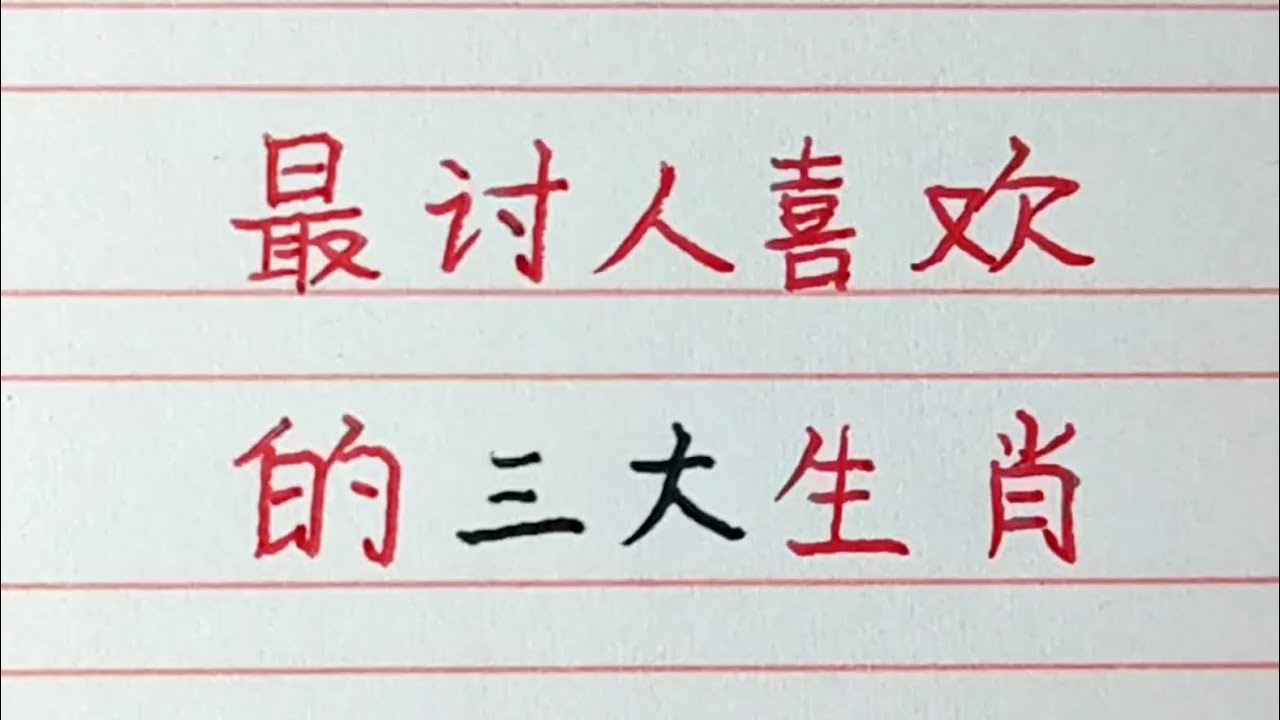 最讨人喜欢
的三大生肖